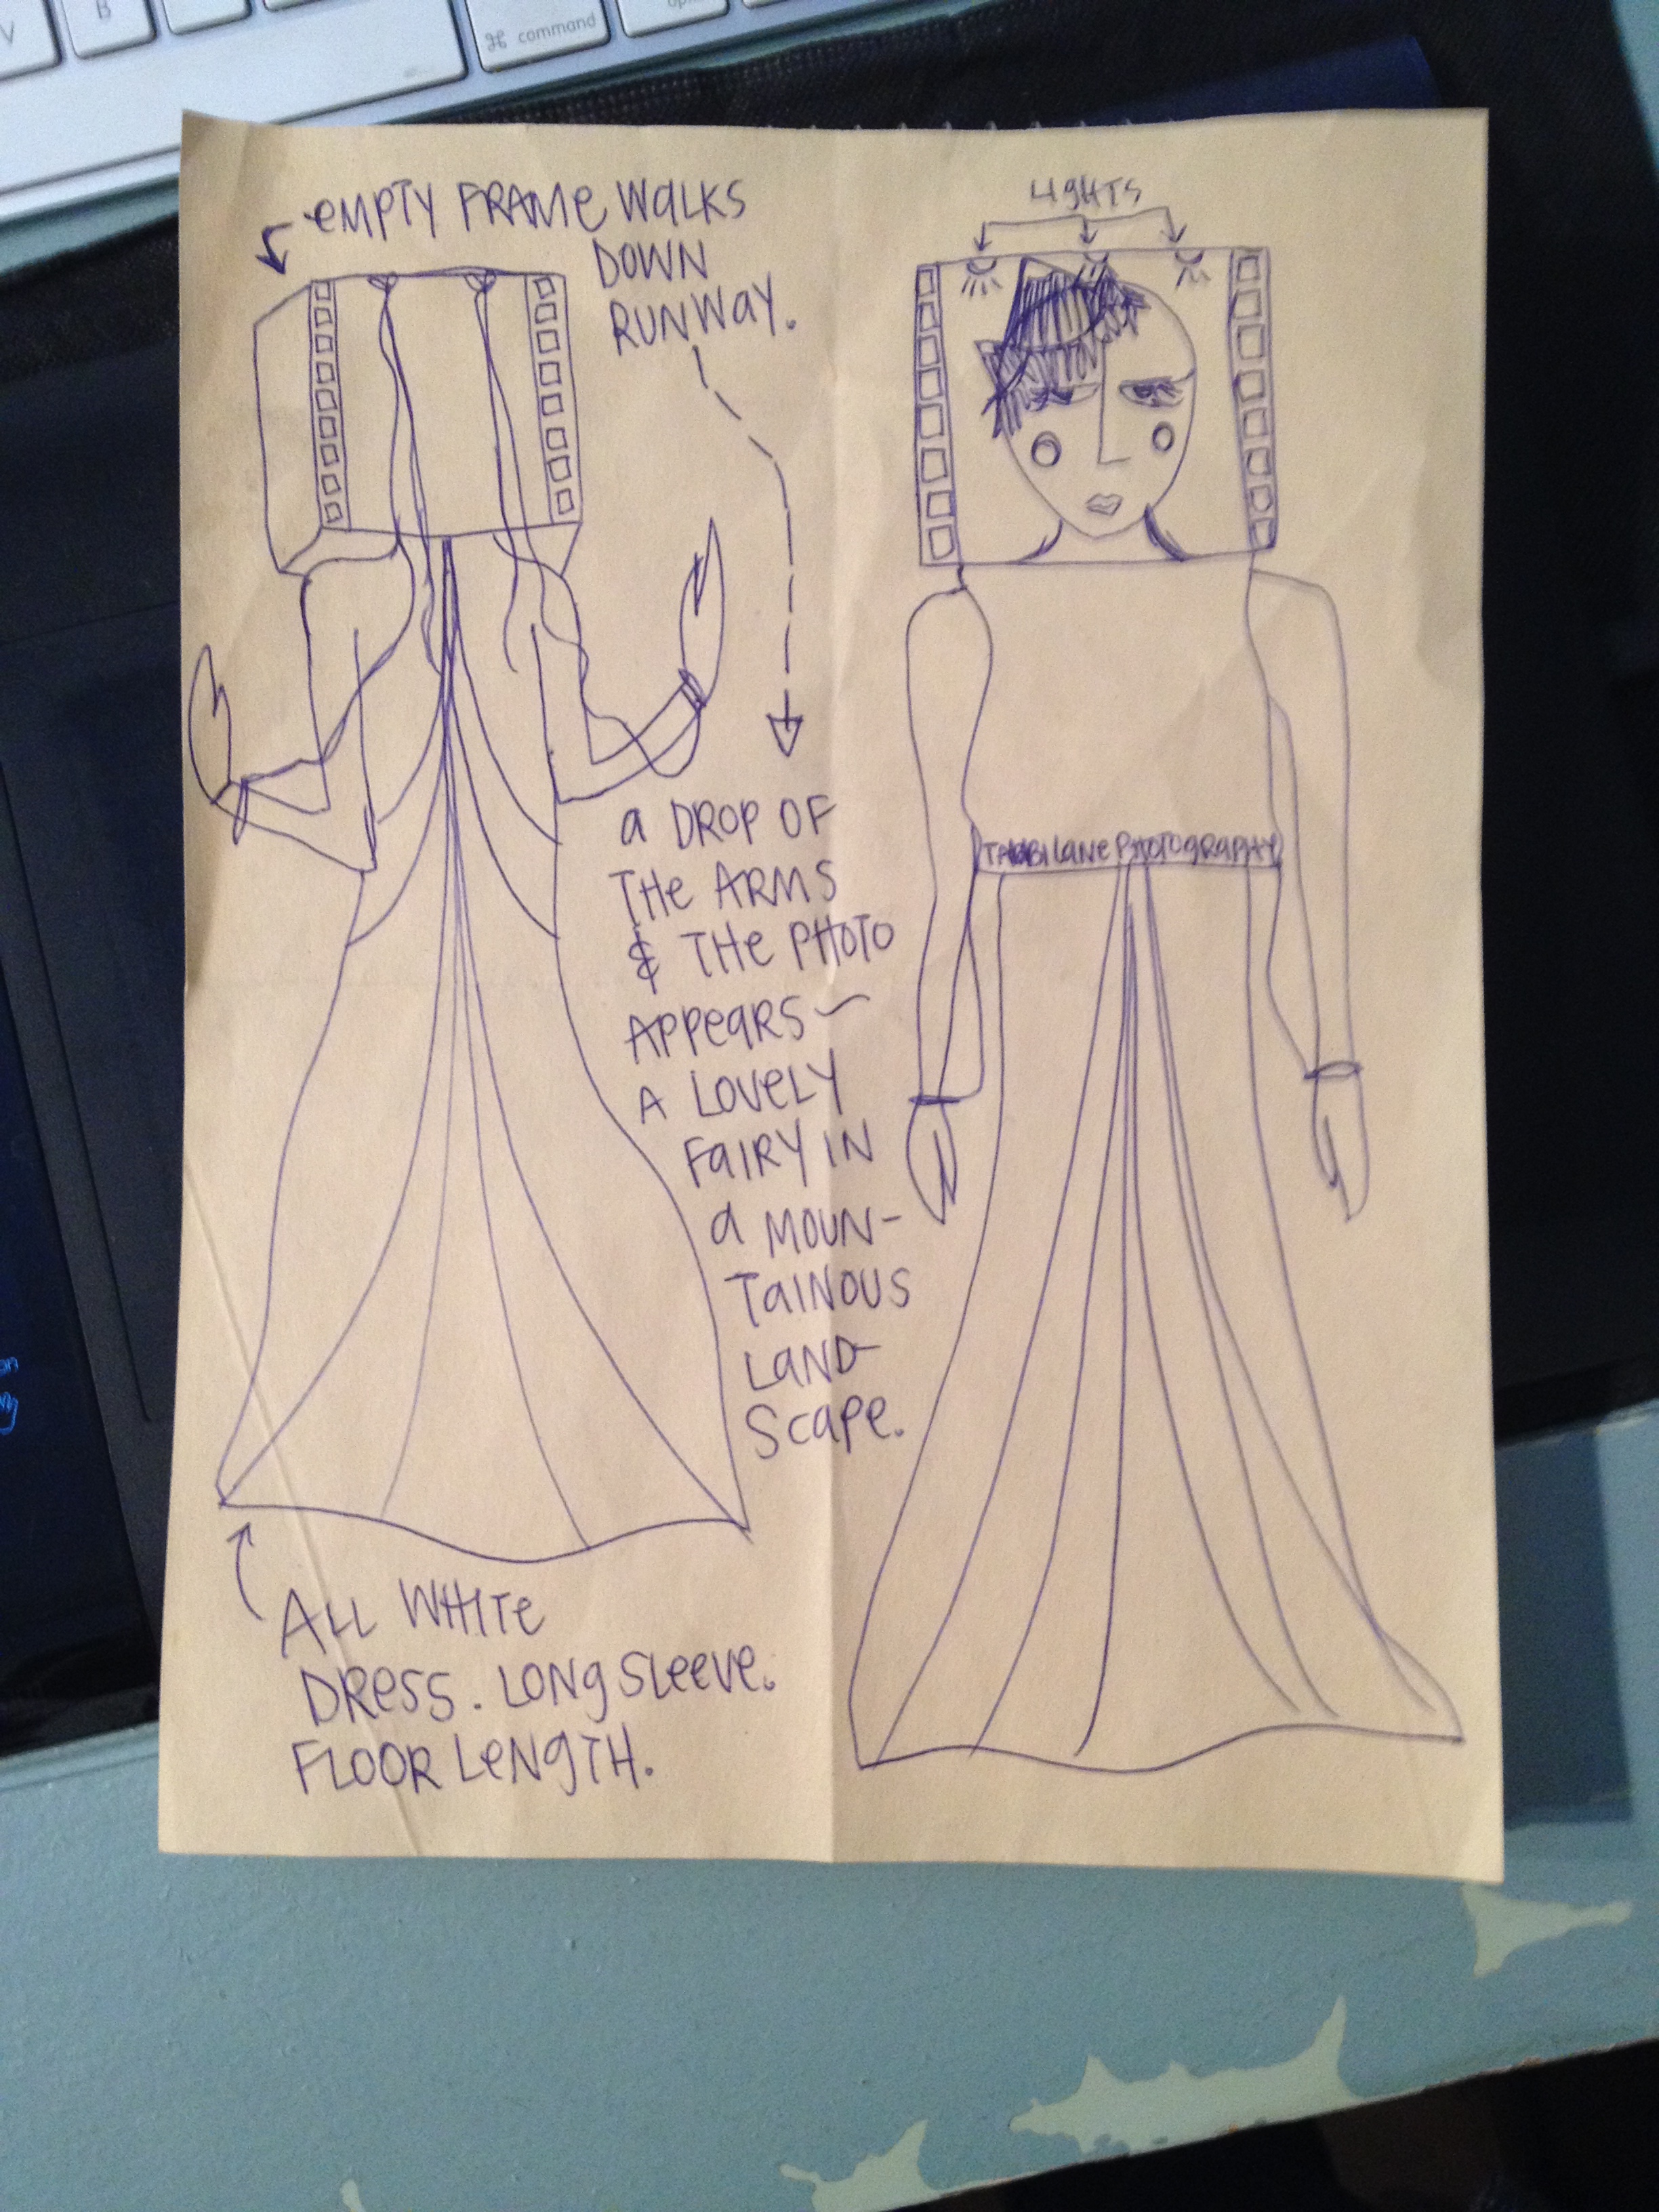 V
B
⌘ command
EMPTY FRAME WALKS
DOWN
RUNWAY.
LIGHTS
a DROP OF
THE ARMS
& THE PHOTO
APPEARS —
A LOVELY
FAIRY IN
a MOUN-
TAINOUS
LAND-
SCAPE.
LANE PHOTOGRAPHY
ALL WHITE
DRESS. LONG SLEEVE.
FLOOR LENGTH.